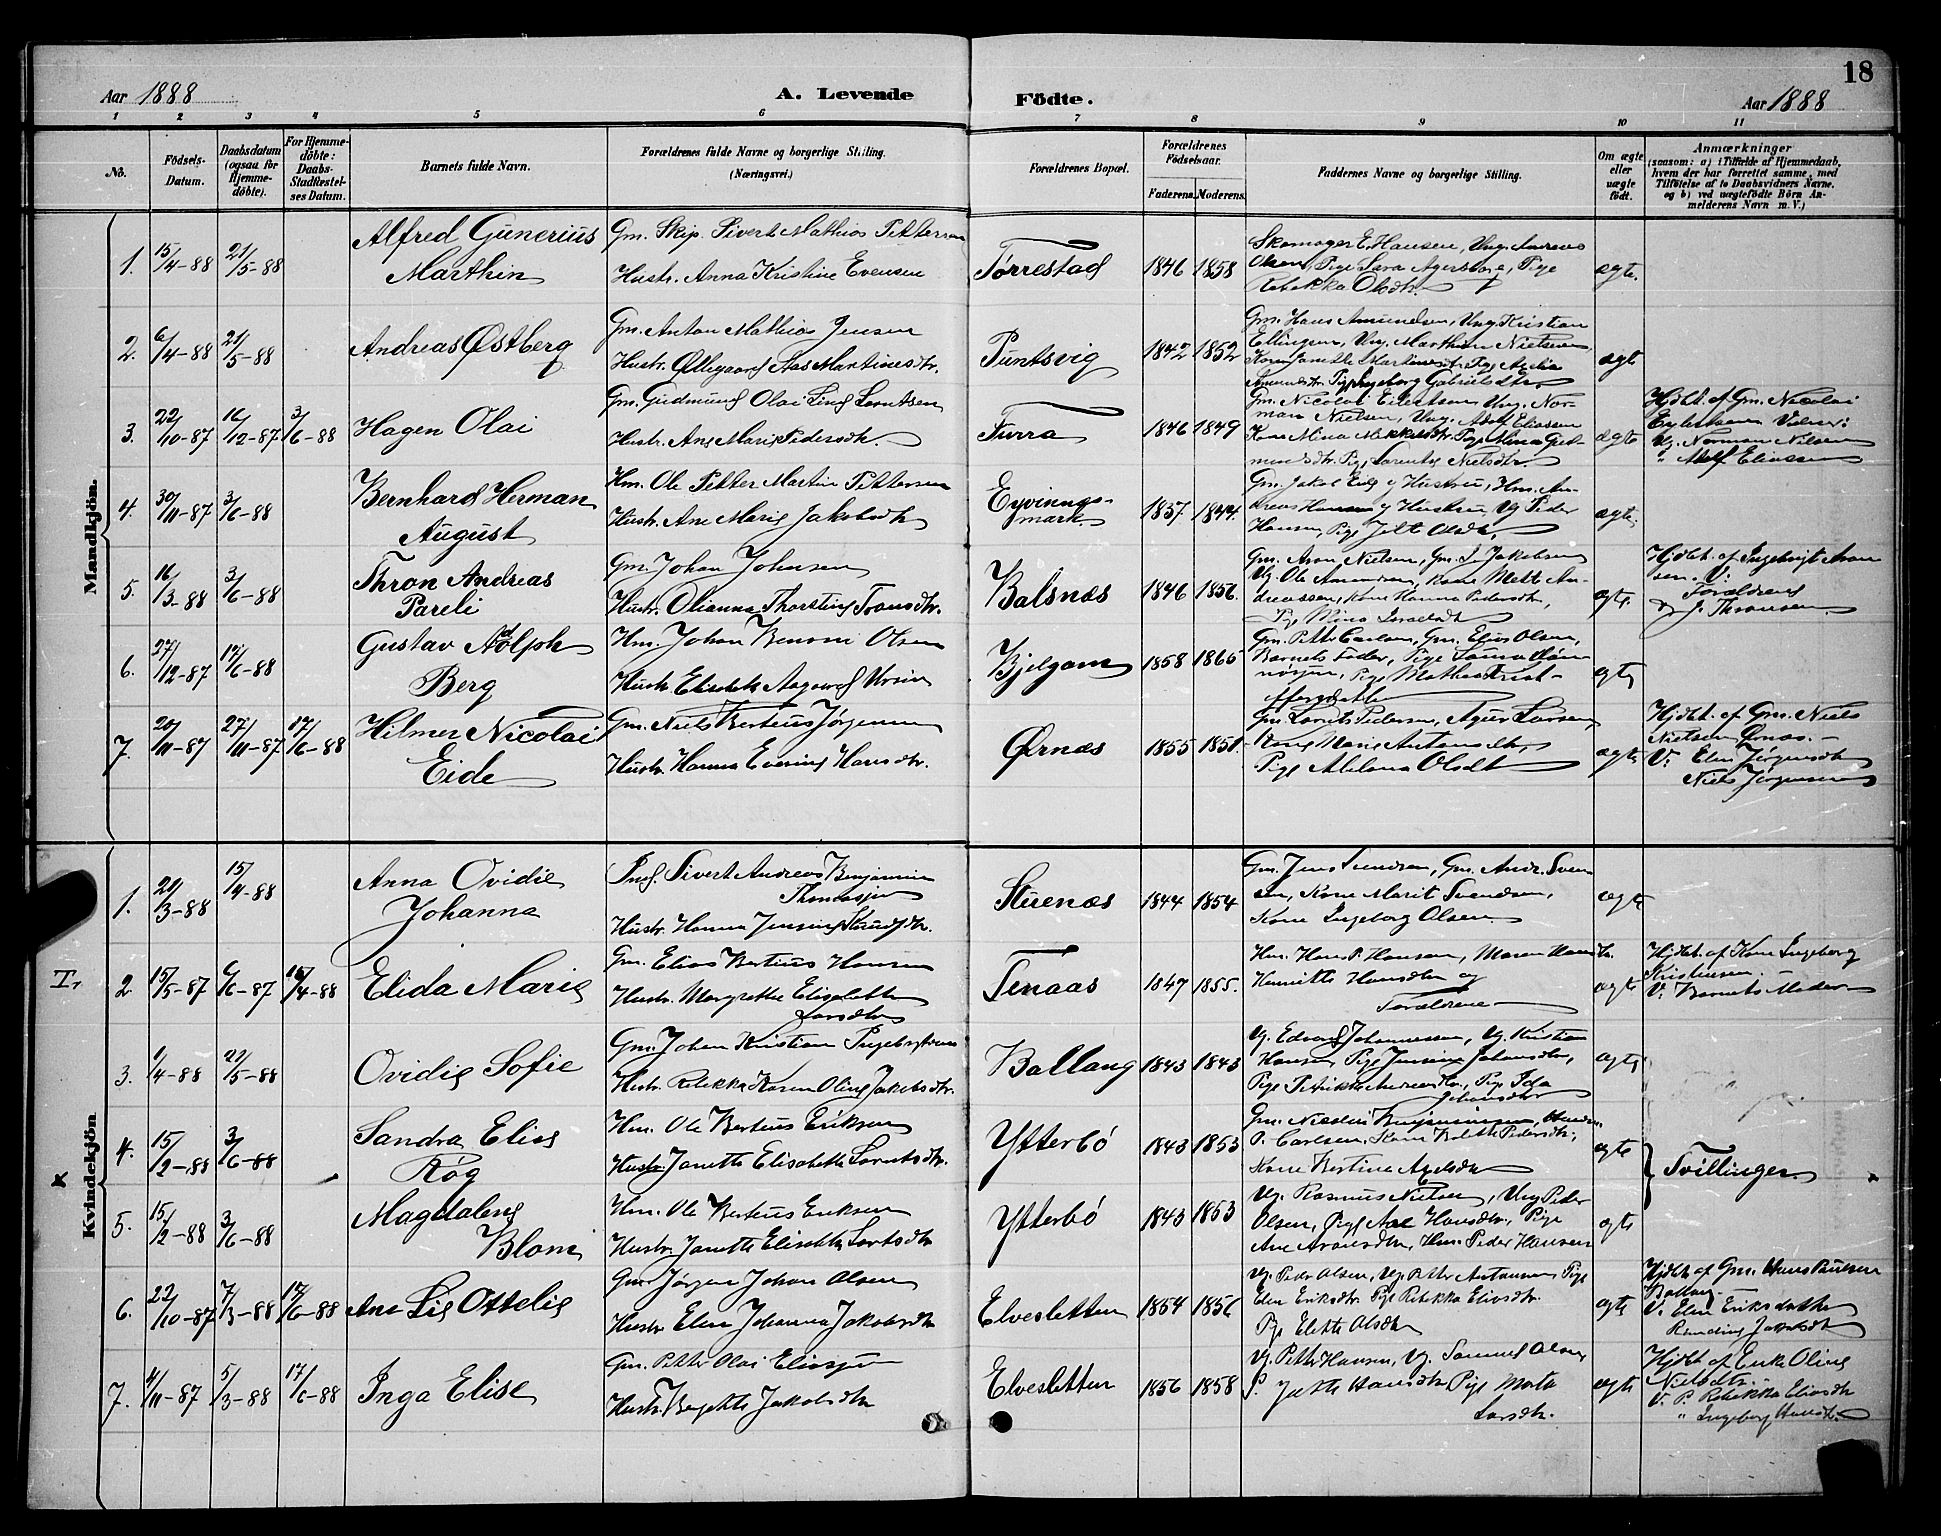 18
Aar 1888 A. Levende Födte. Aar 1888
1 2 3 4 5 6 7 8 9 10 11
No.
Födsels-
Datum.
Daabsdatum
(ogsaa for
Hjemme-
döbte).
For Hjemme-
döbte:
Daabs-
Stadfæstel-
ses Datum.
Barnets fulde Navn.
Forældrenes fulde Navne og borgerlige Stilling.
(Næringsvei.)
Forældrenes Bopæl.
Forældrenes
Födselsaar.
Faderens. Moderens.
Faddernes Navne og borgerlige Stilling.
Om ægte
eller
uægte
födt.
Anmærkninger
(saasom: a) i Tilfælde af Hjemmedaab,
hvem der har forrettet samme, med
Tilföielse af to Daabsvidners Navne,
og b) ved uægtefödte Börn An-
melderens Navn m. V.)
Mandkjön.
1. 15/4-88 21/5-88
Alfred Gunerius
Marthin
Gm. Skip. Sivert Mathias Pettersen
Hustr. Anna Kristine Evensen
Tørrestad 1846 1858
Skomager E. Hansen, Ung. Andreas
Olsen, Pige Sara, Pige
Rebekka Olsdtr.
ægte.
2. 6/4-88 21/5-88
Andreas Østberg
Gm. Anton Mathias Jensen
Hustr. Øllegaard Aas Martinesdtr.
Puntsvig 1842 1852
Gm. Hans Amundsen, Ung. Kristian
Ellingsen, Ung. Marthin Nielsen,
Ingeborg Gabrielsdtr.
ægte
3. 22/10-87 16/12-87 3/6-88
Hagen Olai
Gm. Gudmund Olai Lind Lorntsen
Hustr. Ane Marie Pedersdtr.
Furra 1846 1849
Gm. Nicolai Eilertsen, Ung. Nor-
man Nielsen, Ung. Adolf Eliassen
Kone Mina Mikkelsdtr. Pige Mina Gud-
mundsdtr. Pige Lorentse Nielsdtr.
ægte
Hjdbt. af Gm. Nicolai
Eylertsen Vidner:
Ug. Norman Nilsen
" Adolf Eliassen
4. 30/11-87 3/6-88
Bernhard Herman
August
Hm. Ole Petter Martin Pettersen
Hustr. Ane Marie Jakobsdtr.
Eyvinings-
mark 1857 1844.
Gm. Jakob og Hustru, Hm. An-
dreas Hansen og Hustru, Ug. Peder
Hansen, Pige Olsdtr.
ægte.
5. 16/3-88 3/6-88
Thron Andreas
Pareli
Gm. Johan Johansen
Hustr. Olianna Thorstine Tronsdtr.
Balsnæs 1846 1856.
Gm. Aron Nielsen, Gm. J. Jakobsen
Ug. Ole Amundsen, Kone Mette An-
dreassen, Kone Hanna Pedersdtr.,
Pige Mina Israelsdtr.
ægte.
Hjdbt. af Ingebrigt Aron
sen. V:
Forældrene
og J. Thronsen
6. 27/12-87 17/6-88
Gustav Adolph
Berg
Hm. Johan Benoni Olsen
Hustr. Elisabeth Aagaard
Bjelgam 1858 1865
Gm. Petter Carlsen, Gm. Elias Olsen,
Barnets Fader, Pige
Pige Mathea Krist-
offersdatter
ægte
7. 20/11-87 27/11-87 17/6-88
Hilmer Nicolai
Eide
Gm. Niels Berteus Jørgensen
Hustr. Hanna Evening Hansdtr.
Ørnæs 1855 1851.
Gm. Lornts Pedersen, Larsen,
Kone Marie Antonsdtr.
Pige Olsdtr
ægte
Hjdbt. af Gm. Niels
Nielsen Ørnæs.
V: Elen Jørgensdtr
Niels Jørgensen
Kvindekjön
1. 20/3-88 15/4-88
Anna Ovidie
Johanna
Sivert Andreas Benjamin
Thomassen
Hustr. Hanna Jensine
Stuenæs 1844 1854
Gm. Jens Svendsen, Gm. Andr. Sven-
sen, Kone Marit Svendsen,
Kone Ingeborg Olsen
ægte
T.
2. 15/5-87 6/6-87 15/4-88
Elida Marie
Gm. Elias Berteus Hansen
Hustr. Margrethe Elisabeth
Larsdtr.
Tenaas 1847 1855.
Hm. Hans P. Hansen, Maren Hansdtr.
Henriette Hansdtr og
Forældrene
ægte
Hjdbt. af Kone Ingeborg
Kristiansen.
V: Barnets Moder
3. 1/4-88 22/5-88
Ovidie Sofie
Gm. Johan Kristian Ingebrigtsen
Hustr. Rebekka Karen Oline Jakobsdtr.
Ballang 1843 1843
Ug. Edvard Johannessen, Ug. Kristian
Hansen, Pige Jensine Johansdtr,
Pige Petrikke Andreasdtr., Pige Ida
Johansdtr
ægte
4. 15/2-88 3/6-88
Sandra Elise
Røg
Hm. Ole Berteus Eriksen
Hustr. Janette Elisabeth Lorntsdtr.
Ytterbö 1843 1853
Gm. Nicolai Benjaminsen,
P. Carlsen, Kone Pedersdtr,
Kone Bertine Axelsdtr
ægte
Tvillinger.
x
5. 15/2-88 3/6-88
Magdalene
Blom
Hm. Ole Berteus Eriksen
Hustr. Janette Elisabeth Lorntsdtr
Ytterbö 1843 1853
Ug. Rasmus Nielsen, Ung. Peder
Olsen, Pige Hansdtr., Pige
Ane Aronsdtr., Hm. Peder Hansen
ægte
6. 22/10-87 7/3-88 17/6-88
Ane Lie Ottelie
Gm. Jørgen Johan Olsen
Hustr. Elen Johanna Jakobsdtr
Elvesletten 1854 1856
Ug. Peder Olsen, Ug. Petter Antonsen, Pige
Elen Eriksdtr. Pige Rebekka Eliasdtr.
Pige Elette Olsdtr
ægte
Hjdbt. af Gm. Hans Paulsen
Ballang.
V. Elen Eriksdatter
Jakobsdtr
7. 4/11-87 5/3-88 17/6-88
Inga Elise
Gm. Petter Olai Eliassen
Hustr. Jakobsdtr
Elvesletten 1856 1858
Ug. Petter Hansen, Ug. Samuel Olsen
P. Hansdtr Pige Marta
Larsdtr.
ægte
Hjdbt af Enke Oline
Nielsdtr.
V. P. Rebekka Eliasdtr
" Ingeborg Hansdtr.